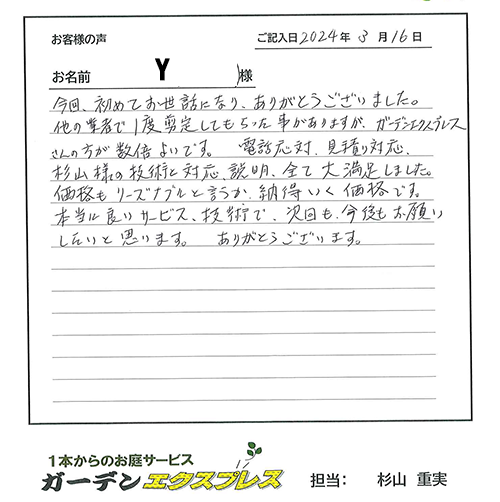 お客様の声
ご記入日 2024年 3月16日
お名前 Y 様
今回、初めてお世話になり、ありがとうございました。
他の業者で1度剪定してもらった事がありますが、ガーデンエクスプレス
さんの方が数倍よいです。 電話応対、見積り対応、
杉山様の技術と対応、説明、全て大満足しました。
価格もリーズナブルと言うか、納得いく価格です。
本当に良いサービス、技術で、次回も、今後もお願い
したいと思います。 ありがとうございます。
1本からのお庭サービス
ガーデンエクスプレス 担当: 杉山 重実